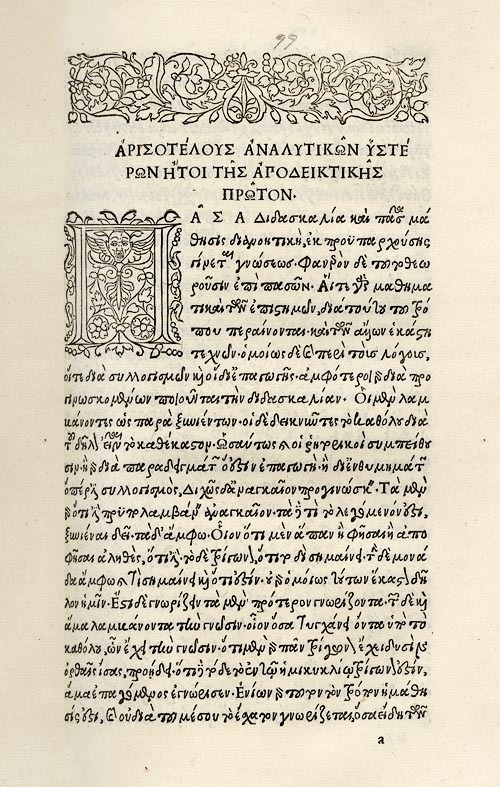 99
ἈΡΙΣΟΤΈΛΟΥΣ ἈΝΑΛΥΤΙΚΩ͂Ν ὙΣΤΈ
ΡΩΝ ΗΤΟΙ ΤΗ͂Σ ἈΠΟΔΕΙΚΤΙΚΗ͂Σ
ΠΡΩ͂ΤΟΝ.
ΠΑ͂ΣΑ Διδασκαλία καὶ πᾶσα μά
θησις διανοητικὴ, ἐκ προϋπαρχούσης
γίνεται γνώσεως. Φανερὸν δὲ τοῦτο θεω
ροῦσιν ἐπὶ πασῶν. Αἵ τε γὰρ μαθημα
τικαὶ τῶν ἐπιστημῶν, διὰ τούτου τοῦ τρό
που περαίνονται. καὶ τῶν ἄλλων ἑκάστη
τεχνῶν. ὁμοίως δὲ καὶ περὶ τοὺς λόγους,
οἵ τε διὰ συλλογισμῶν καὶ οἱ δι' ἐπαγωγῆς. ἀμφότεροι γὰρ διὰ προ
γινωσκομένων ποιοῦνται τὴν διδασκαλίαν. Οἱ μὲν λαμ
βάνοντες ὡς παρὰ ξυνιέντων. οἱ δὲ δεικνῦντες τὸ καθόλου διὰ
τοῦ δῆλον εἶναι τὸ καθέκαστον. Ὡσαύτως δὲ καὶ οἱ ῥητορικοὶ συμπείθου
σιν. ἢ γὰρ διὰ παραδειγμάτων, ὅ ἐστιν ἐπαγωγὴ. ἢ δι' ἐνθυμημάτων
ὅπερ ἐστὶ συλλογισμός. Διχῶς δ' ἀναγκαῖον προγινώσκειν. Τὰ μὲν
γὰρ ὅτι ἐστὶ προϋπολαμβάνειν ἀναγκαῖον. τὰ δὲ τί τὸ λεγόμενόν ἐστι,
ξυνιέναι δεῖ. τὰ δ' ἄμφω. Οἷον ὅτι μὲν ἅπαν ἢ φῆσαι ἢ ἀπο
φῆσαι ἀληθὲς, ὅτι ἐστί. τὸ δὲ τρίγωνον, ὅτι τοδὶ σημαίνει. τὴν δὲ μονά
δα ἄμφω, καὶ τί σημαίνει, καὶ ὅτι ἔστιν. οὐ γὰρ ὁμοίως τούτων ἕκαστον δῆ
λον ἡμῖν. Ἔστι δὲ γνωρίζειν τὰ μὲν πρότερον γνωρίζοντα. τῶν δὲ καὶ
ἅμα λαμβάνοντα τὴν γνῶσιν. οἷον ὅσα τυγχάνει ὄντα ὑπὸ τὸ
καθόλου, ὧν ἔχει τὴν γνῶσιν. ὅτι μὲν γὰρ πᾶν τρίγωνον ἔχει δυσὶν
ὀρθαῖς ἴσας, προῄδει. ὅτι δὲ τόδε τὸ ἐν τῷ ἡμικυκλίῳ τρίγωνόν ἐστιν,
ἅμα ἐπαγόμενος ἐγνώρισεν. Ἐνίων γὰρ τοῦτον τὸν τρόπον ἡ μάθη
σίς ἐστι, καὶ οὐ διὰ τοῦ μέσου τὸ ἔσχατον γνωρίζεται, ὅσα ἤδη τῶν
a